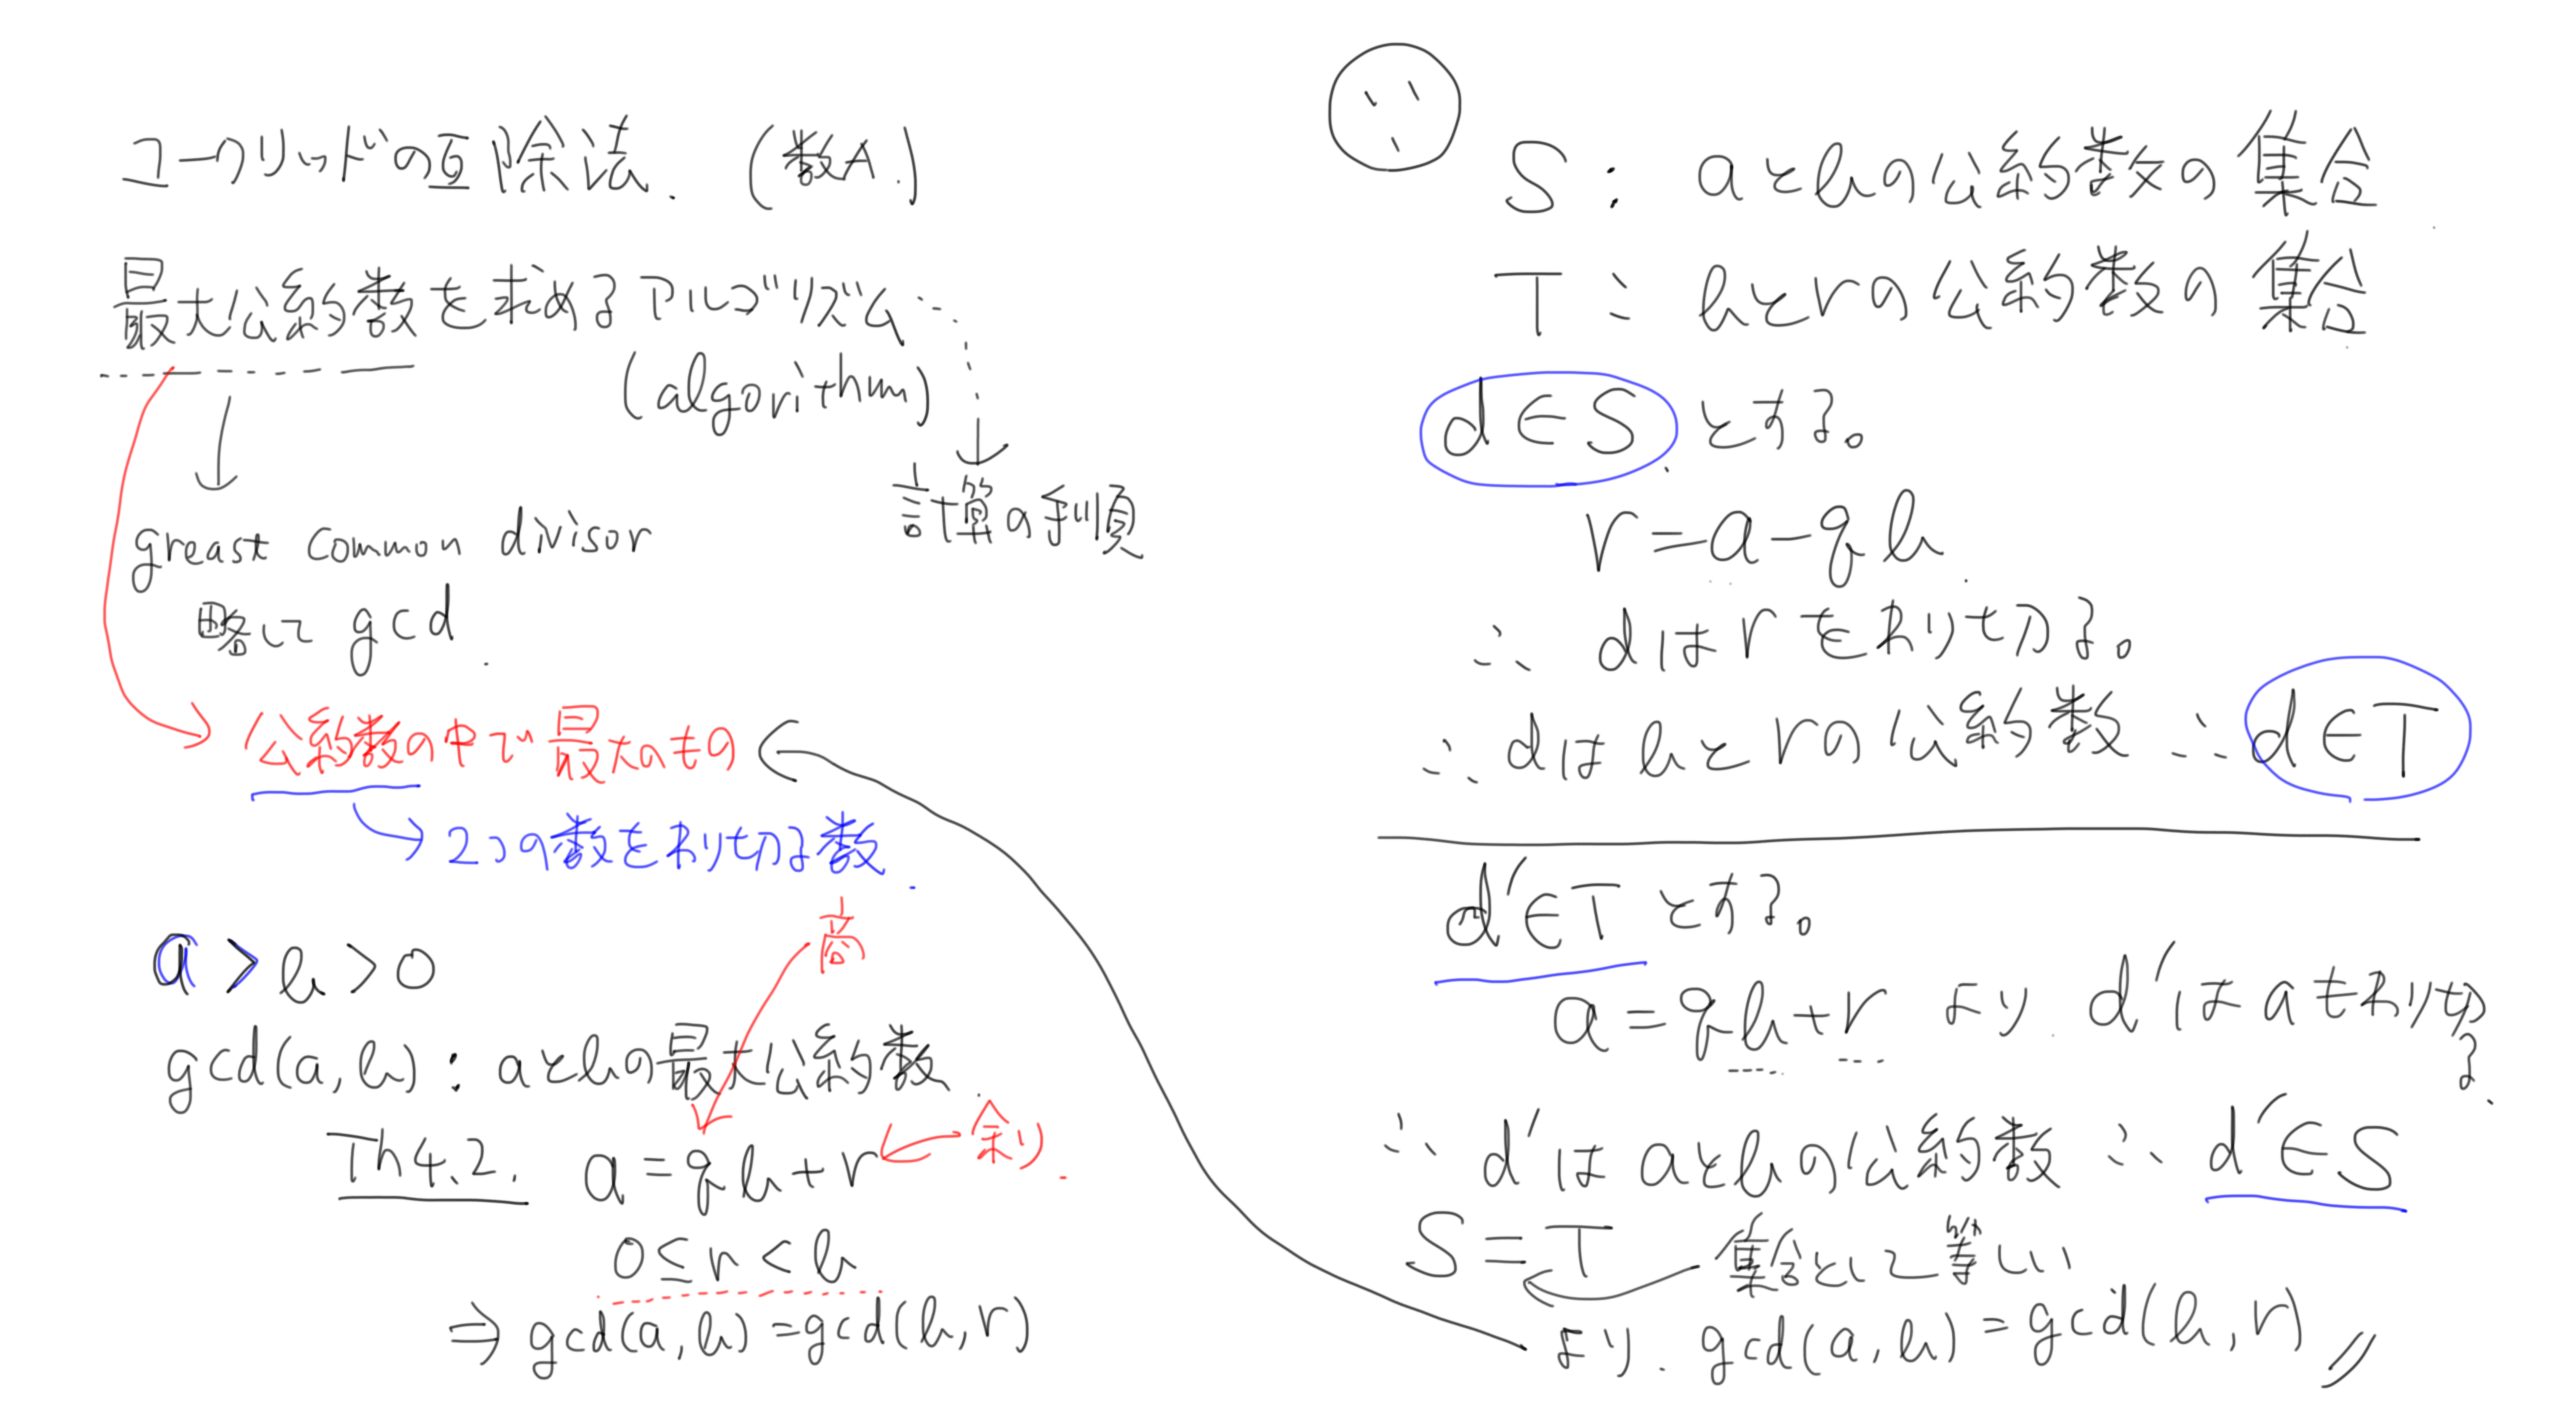 ユークリッドの互除法. (数A.)
最大公約数を求めるアルゴリズム
(algorithm)
計算の手順
greast common divisor
略して gcd.
公約数の中で最大のもの
2つの数をわり切る数.
a > b > 0
商
gcd(a, b) : aとbの最大公約数.
Th4.2. a = qb + r
余り.
0 ≤ r < b
⇒ gcd(a, b) = gcd(b, r)
S : aとbの公約数の集合
T : bとrの公約数の集合
d ∈ S とする。
r = a - qb.
∴ dはrをわり切る。
∴ dはbとrの公約数 ∴ d ∈ T
d' ∈ T とする。
a = qb + r より d'はaもわり切る.
∴ d'はaとbの公約数 ∴ d' ∈ S
S = T 集合として等しい
より. gcd(a, b) = gcd(b, r) //